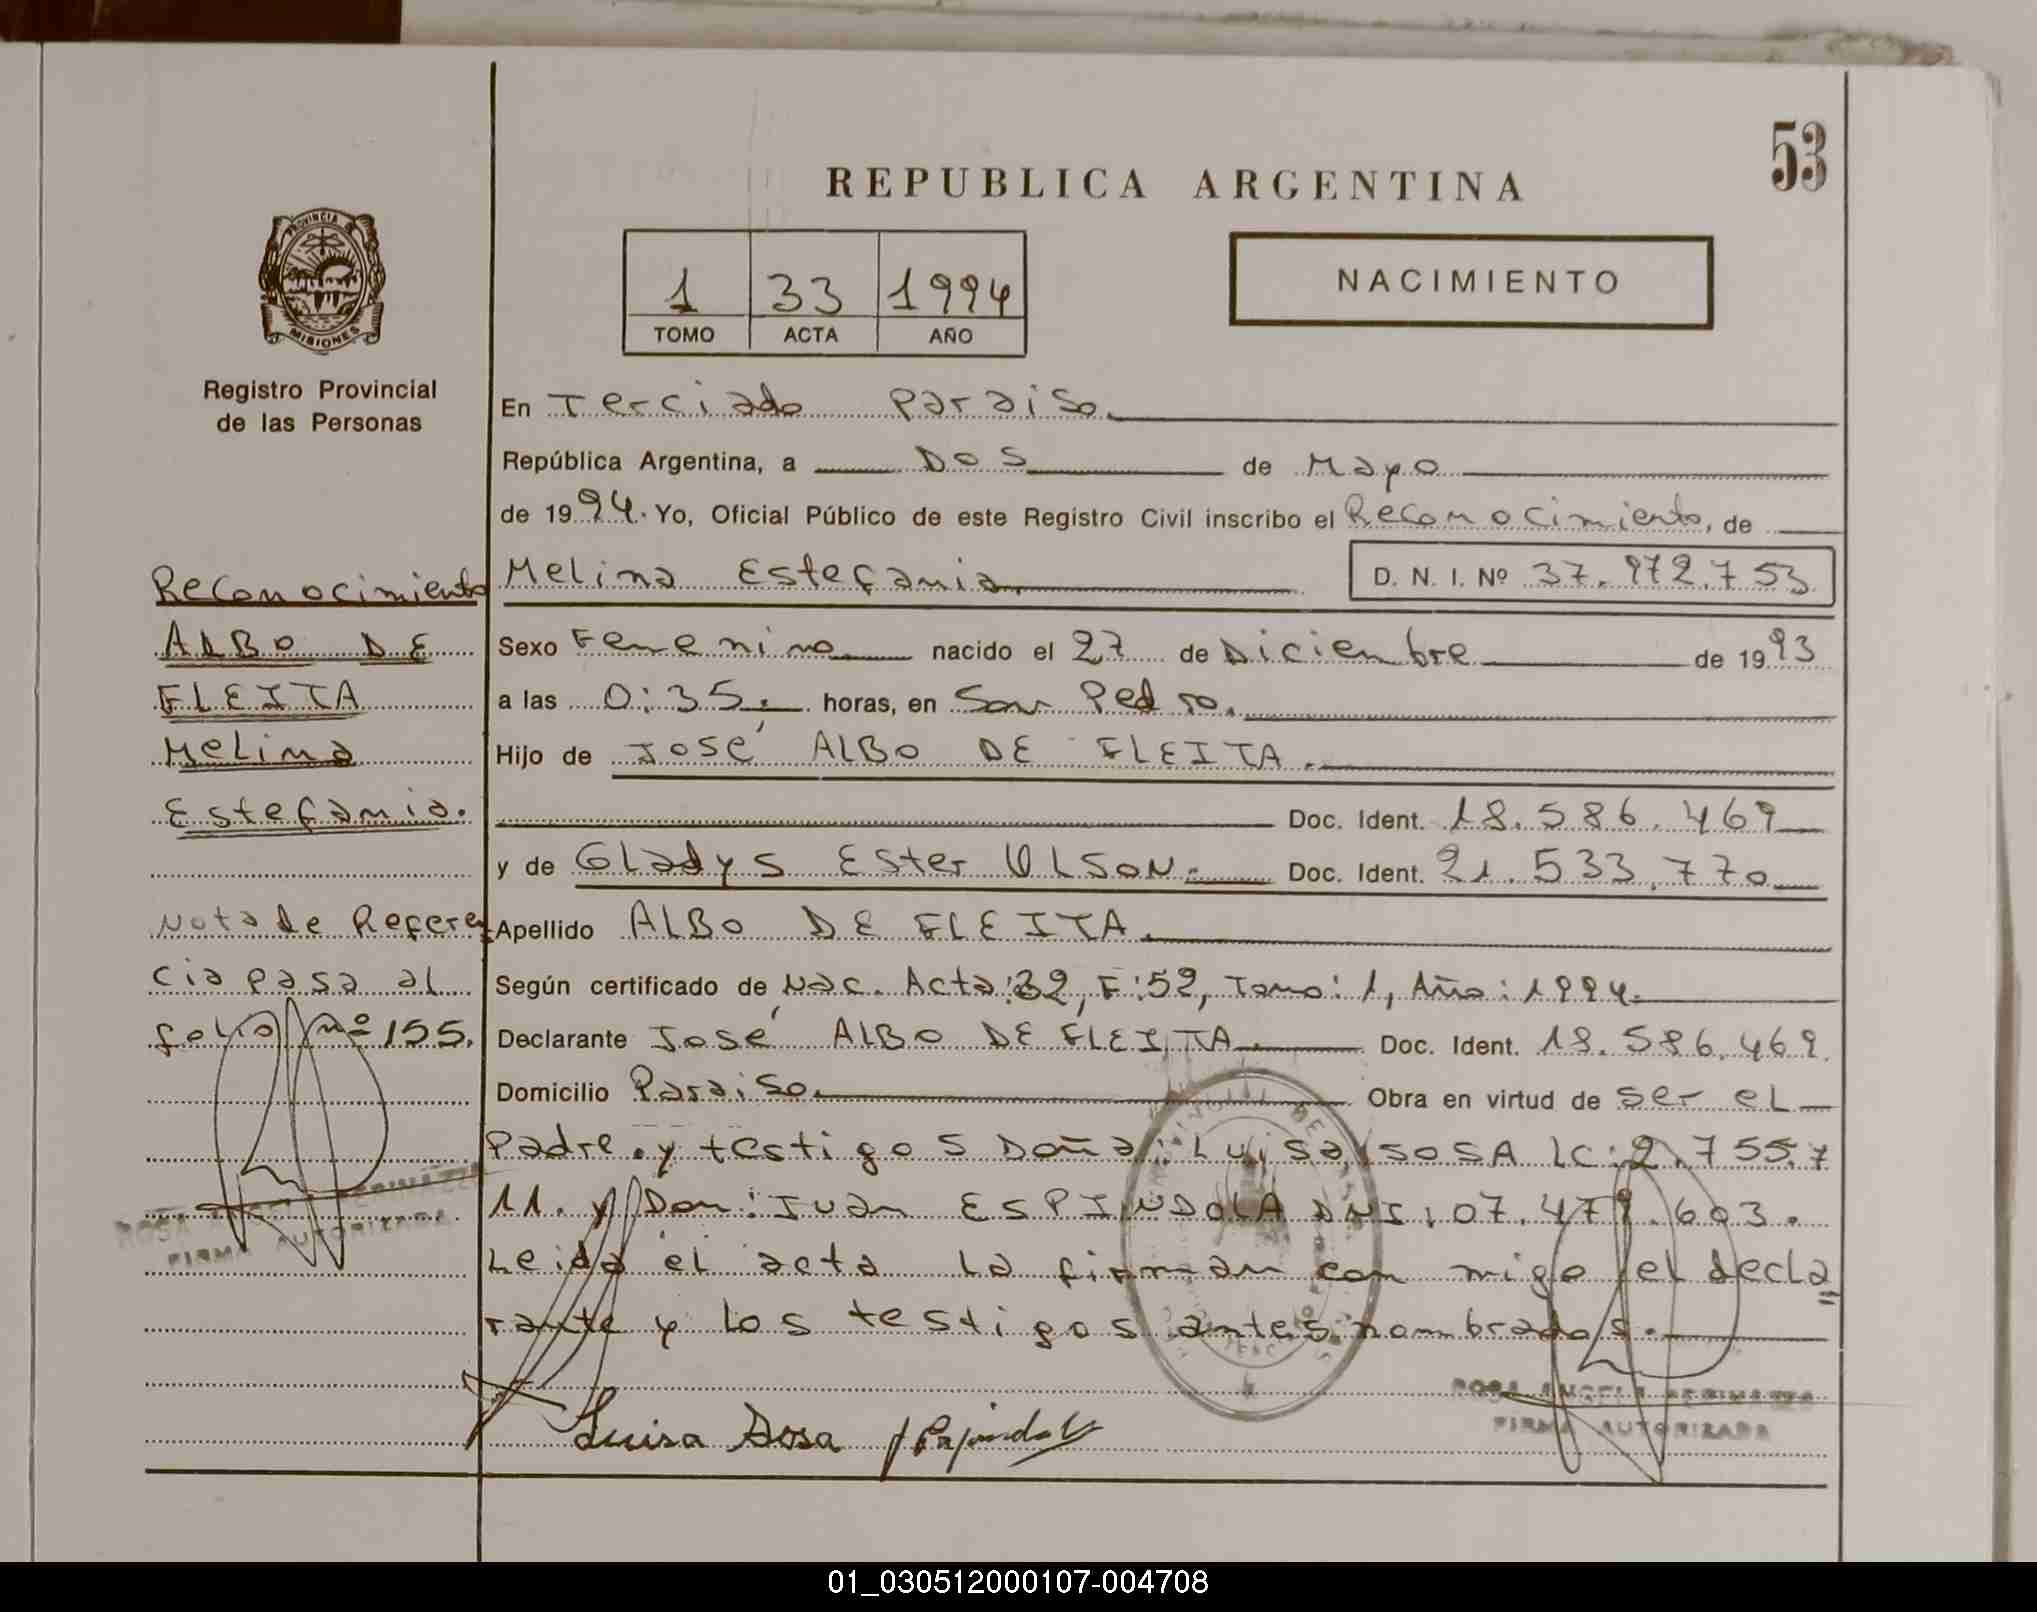 53
REPUBLICA ARGENTINA
PROVINCIA DE
MISIONES
1 33 1994
TOMO ACTA AÑO
NACIMIENTO
Registro Provincial
de las Personas
En Terciado Paraiso.
República Argentina, a Dos de Mayo
de 1994. Yo, Oficial Público de este Registro Civil inscribo el Reconocimiento, de
Melina Estefania D. N. I. Nº 37.972.753
Sexo Femenino nacido el 27 de Diciembre de 1993
a las 0:35. horas, en San Pedro.
Hijo de José ALBO DE FLEITA.
Doc. Ident. 18.586.469
y de Gladys Ester OLSON. Doc. Ident. 21.533.770
Apellido ALBO DE FLEITA.
Según certificado de Nac. Acta:32, F:52, Tomo: 1, Año: 1994.
Declarante José ALBO DE FLEITA. Doc. Ident. 18.586.469.
Domicilio Paraiso. Obra en virtud de ser el
Padre. y testigos Doña: Luisa SOSA LC:2.755.7
11. y Don: Juan ESPINDOLA DNI: 07.479.603.
Leida el acta la firman con migo el decla
rante y los testigos antes nombrados.
Luisa Sosa
ROSA ANGELA
FIRMA AUTORIZADA
Reconocimiento
ALBO DE
FLEITA
Melina
Estefania.
Nota de Referen
cia pasa al
folio nº 155.
ROSA
FIRMA AUTORIZADA
01_030512000107-004708